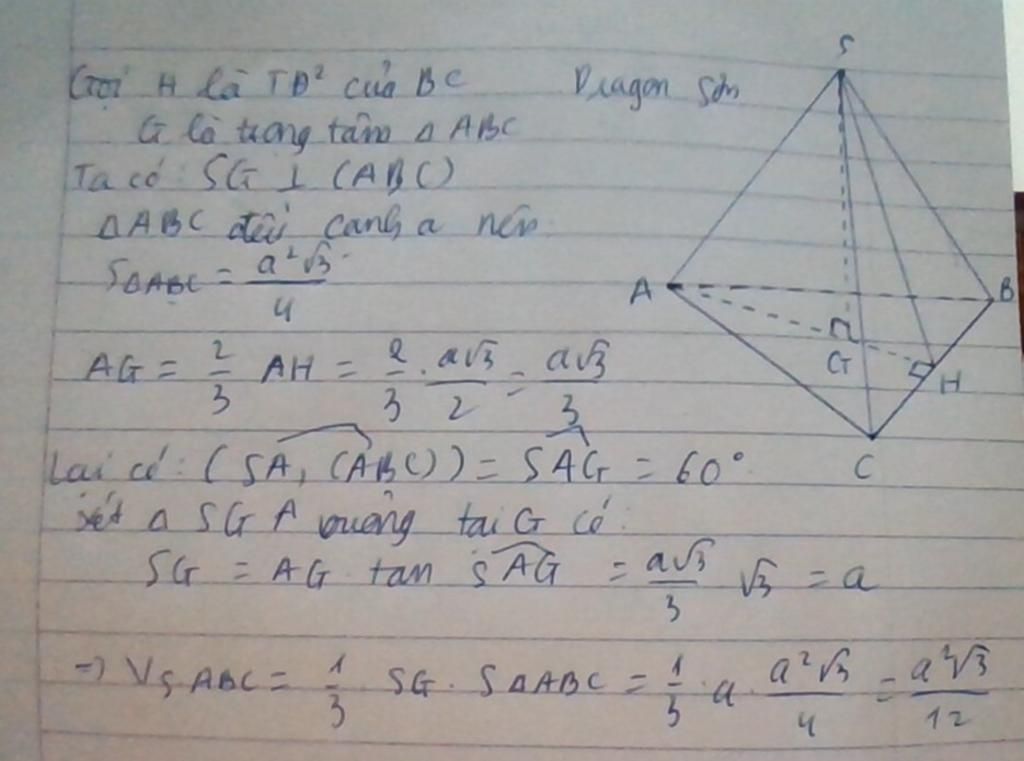 Gọi H là TĐ² của BC
Dragon Sơn
G là trọng tâm ∆ ABC
Ta có: SG ⊥ (ABC)
∆ABC đều cạnh a nên
S∆ABC = a²√3/4
AG = 2/3 AH = 2/3 . a√3/2 = a√3/3
Lại có: (SA, (ABC)) = SAG = 60°
xét ∆ SGA vuông tại G có:
SG = AG. tan SAG = a√3/3 √3 = a
=> VSABC = 1/3 SG. S∆ABC = 1/3 . a . a²√3/4 = a³√3/12
S
A
B
G
H
C